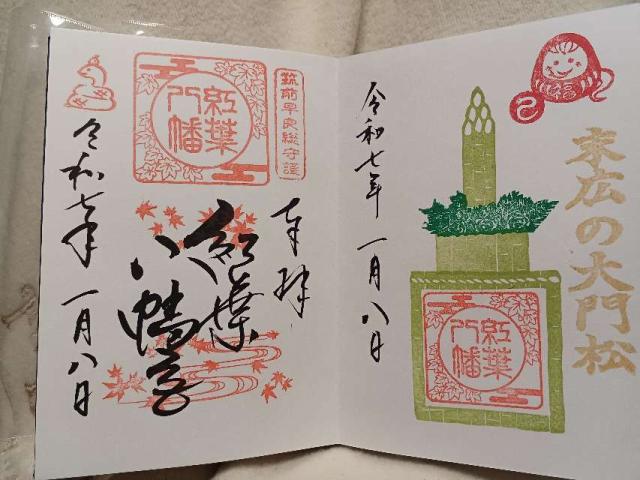 福
巳
末広の大門松
紅葉
八幡
令和七年 一月八日
筑前早良総守護
紅葉
八幡
奉拝
紅葉
八幡宮
令和七年 一月八日